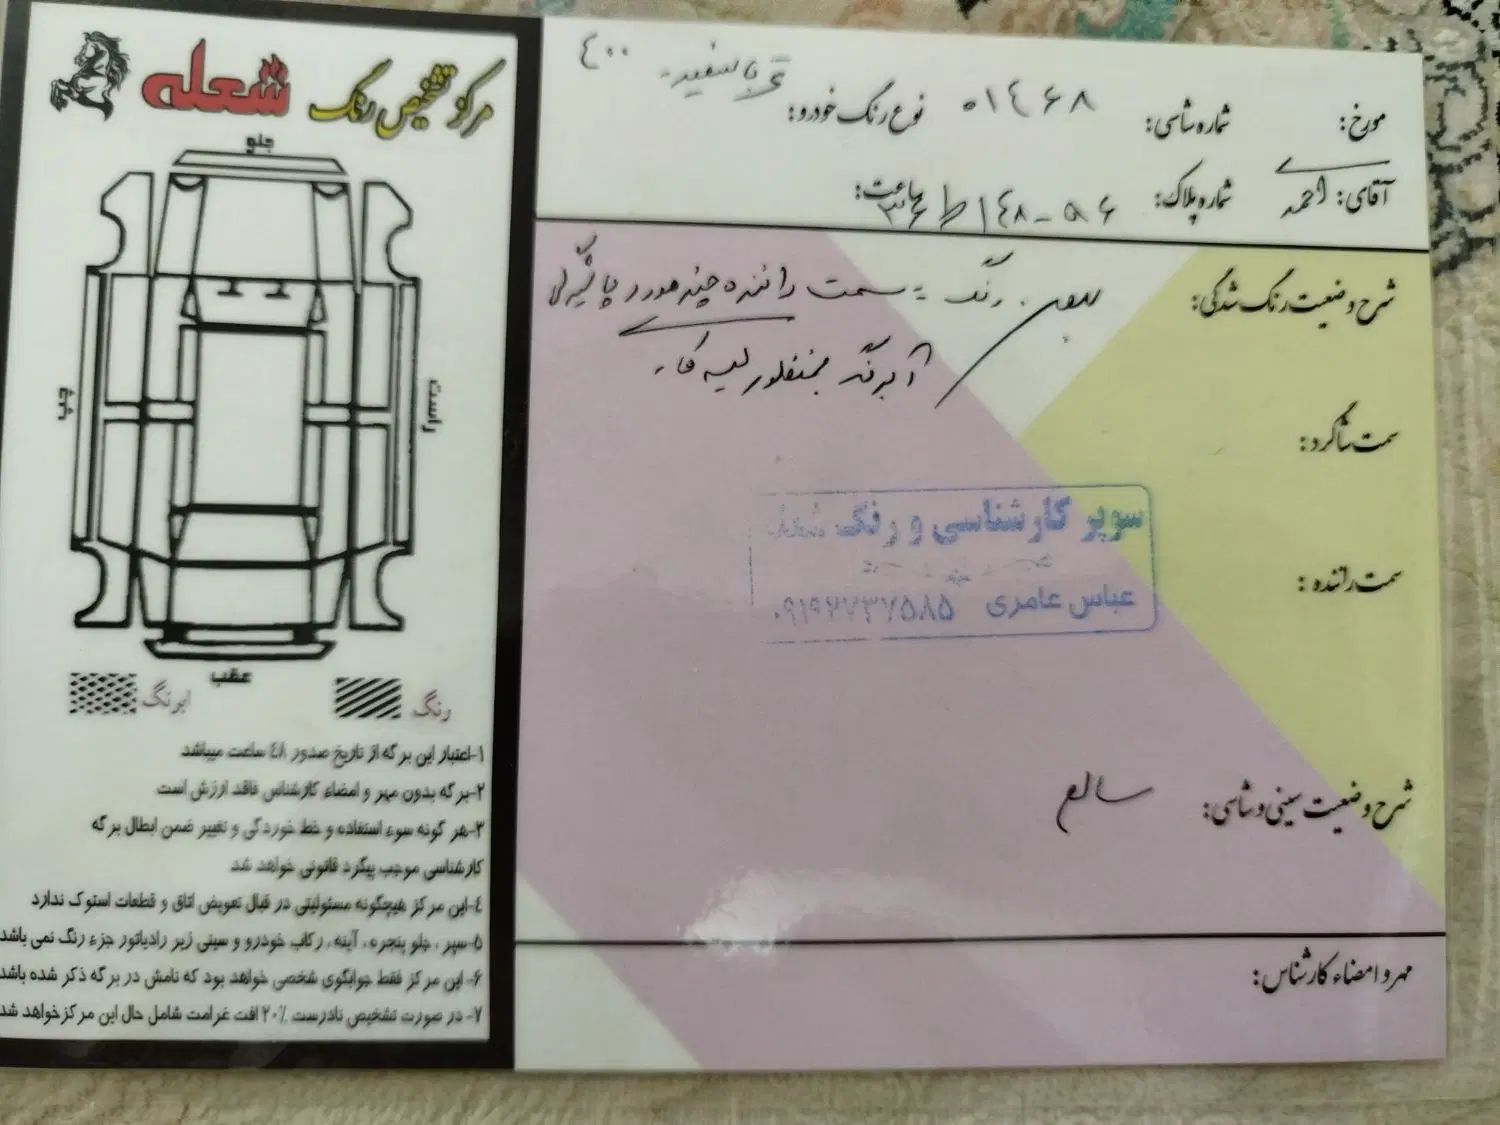 مرکز تشخیص رنگ شعله
جلو
چپ
راست
عقب
رنگ
ابرنگ
۱-اعتبار این برگه از تاریخ صدور ۴۸ ساعت میباشد
۲-برگه بدون مهر و امضاء کارشناس فاقد ارزش است
۳-هر گونه سوء استفاده و خط خوردگی و تغییر ضمن ابطال برگه
کارشناسی موجب پیگرد قانونی خواهد شد
۴-این مرکز هیچگونه مسئولیتی در قبال تعویض اتاق و قطعات استوک ندارد
۵-سپر ، جلو پنجره ، آینه ، رکاب خودرو و سینی زیر رادیاتور جزء رنگ نمی باشد
۶-این مرکز فقط جوابگوی شخصی خواهد بود که نامش در برگه ذکر شده باشد
۷- در صورت تشخیص نادرست ۲۰٪ افت غرامت شامل حال این مرکز خواهد شد
مورخ: شماره شاسی: ۰۱۴۶۸ نوع رنگ خودرو: سفید ۴۰۰
آقای: احمد شماره پلاک: ساعت:
شرح وضعیت رنگ شدگی: بدون رنگ = سمت راننده چند مورد پا گیرگی
آبرنگ لیسه کار
سمت شاگرد:
سمت راننده:
سوپر کارشناسی و رنگ شعله
عباس عامری ۰۹۱۹۲۷۳۷۵۸۵
شرح وضعیت سینی و شاسی: سالم
مهر و امضاء کارشناس: